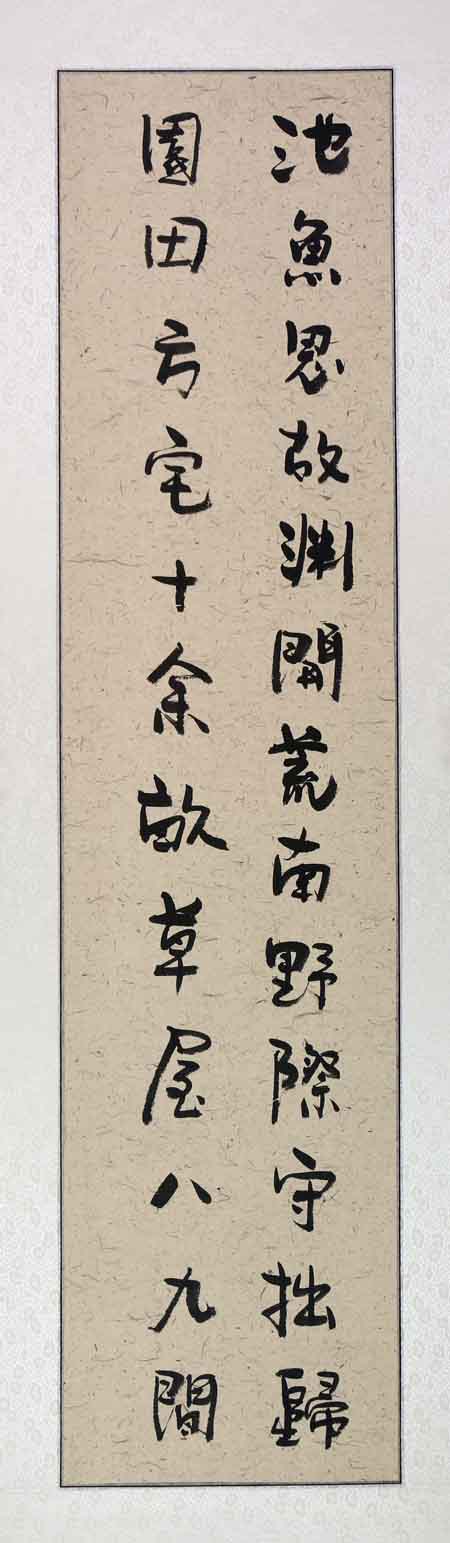 池魚思故渊開荒南野際守拙歸
園田方宅十余畝草屋八九間